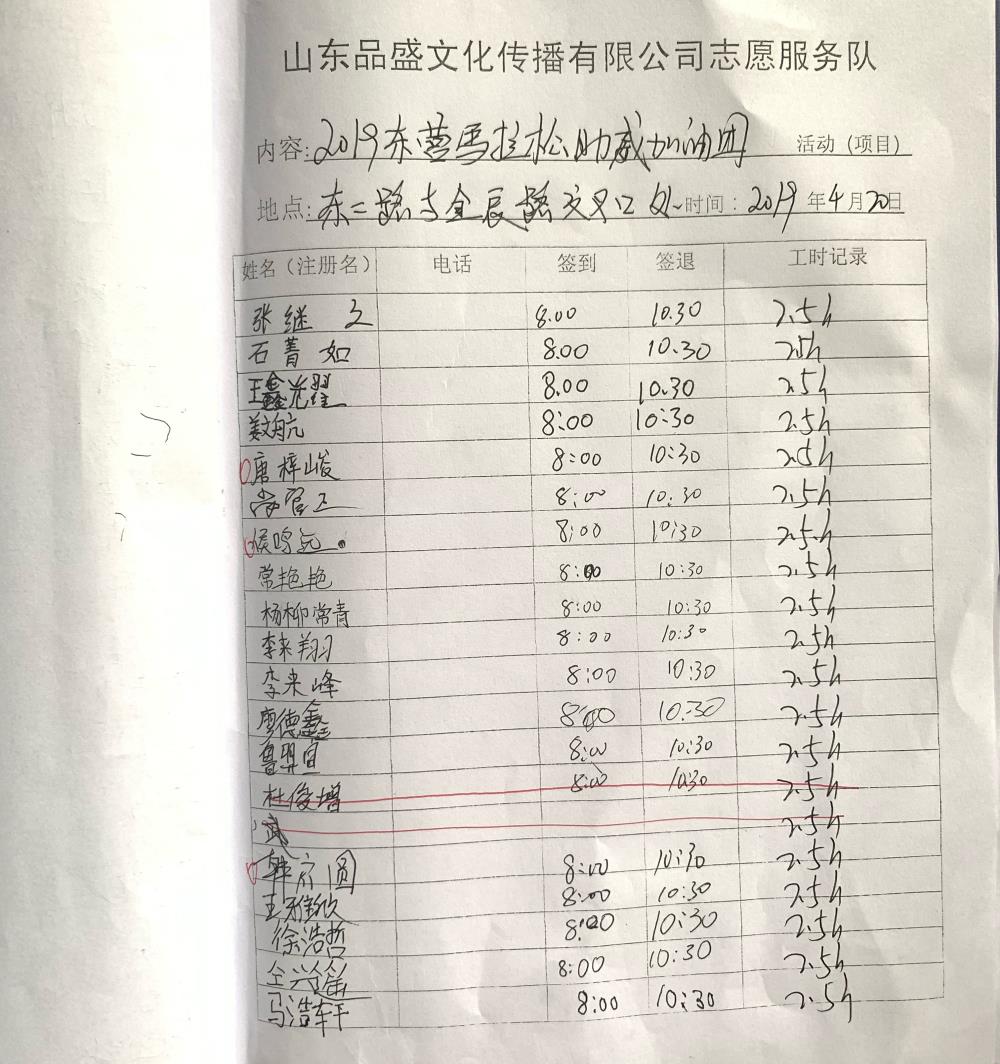 山东品盛文化传播有限公司志愿服务队
内容:2019东营马拉松助威加油团 活动（项目）
地点:东二路与金辰路交叉口处 时间：2019年4月20日
姓名（注册名） 电话 签到 签退 工时记录
张继文 8.00 10.30 2.5h
石菁如 8.00 10.30 2.5h
王鑫 8.00 10.30 2.5h
航 8:00 10:30 2.5h
唐梓峻 8:00 10:30 2.5h
8:00 10:30 2.5h
侯鸣远 8:00 10:30 2.5h
常艳艳 8:00 10:30 2.5h
杨柳常青 8:00 10:30 2.5h
李来翔 8:00 10:30 2.5h
李来峰 8:00 10:30 2.5h
廖德鑫 8:00 10:30 2.5h
鲁 8:00 10:30 2.5h
杜俊增 8:00 10:30 2.5h
武 2.5h
韩 圆 8:00 10:30 2.5h
王雅欣 8:00 10:30 2.5h
徐浩哲 8:00 10:30 2.5h
8:00 10:30 2.5h
马浩轩 8:00 10:30 2.5h